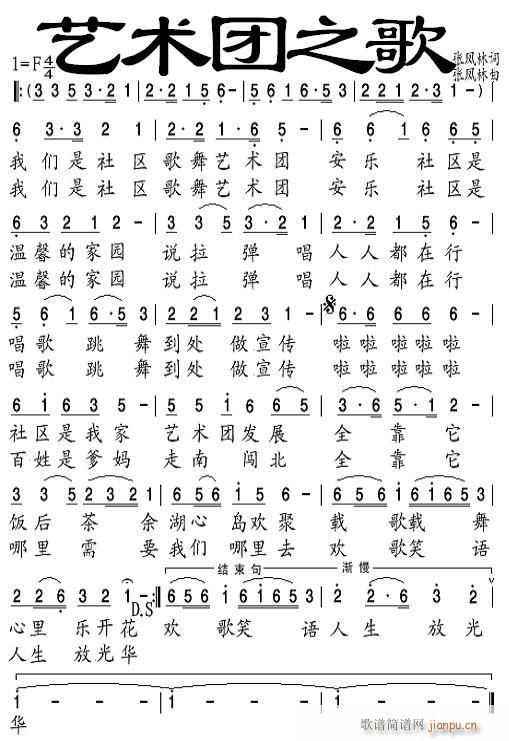 艺术团之歌
1=F 4/4
张凤林词
张凤林曲
‖:(3 3 5 3·2 1 | 2·2 1 5 2 - | 5·6 6 1 6 5 3 | 2 2 2 1 2 1 - ) |
6 3·2 2 | 2·2 1 6 5 - | 6 6 6 1 6 6 5 |
我们是社区 歌舞艺术团 安乐 社区是
我们是社区 歌舞艺术团 安乐 社区是
6 3 2 1 2 - | 3 3 5 3·2 1 | 2 2 1 5 6 - |
温馨的家园 说拉弹唱 人人都在行
温馨的家园 说拉弹唱 人人都在行
5 6 1 6·5 3 | 2 2 2 1 2 3 1 | 6 6 6 6 6 6 |
唱歌 跳舞到处 做宣传 啦啦啦啦啦
唱歌 跳舞到处 做宣传 啦啦啦啦啦
6 1 6 3 5 - | 5·5 1 2 6 6 5 | 3·6 6 5·1 2 |
社区是我家 艺术团发展 全靠它
百姓是爹妈 走南闯北 全靠它
饭后 茶余湖心岛欢聚 载歌载舞
哪里需要我们哪里去 欢歌笑语
结束句
渐慢
2 2 6 3 2 1 - :‖ 6 5 6 1 6 1 6 5 3 | 2 2 6 3 |
D.S
心里 乐开花 欢歌笑语人生 放光
人生 放光华
1 - - - | 1 - - - | 1 - - - | 1 - - - ‖
华
歌谱简谱网
jianpu.cn